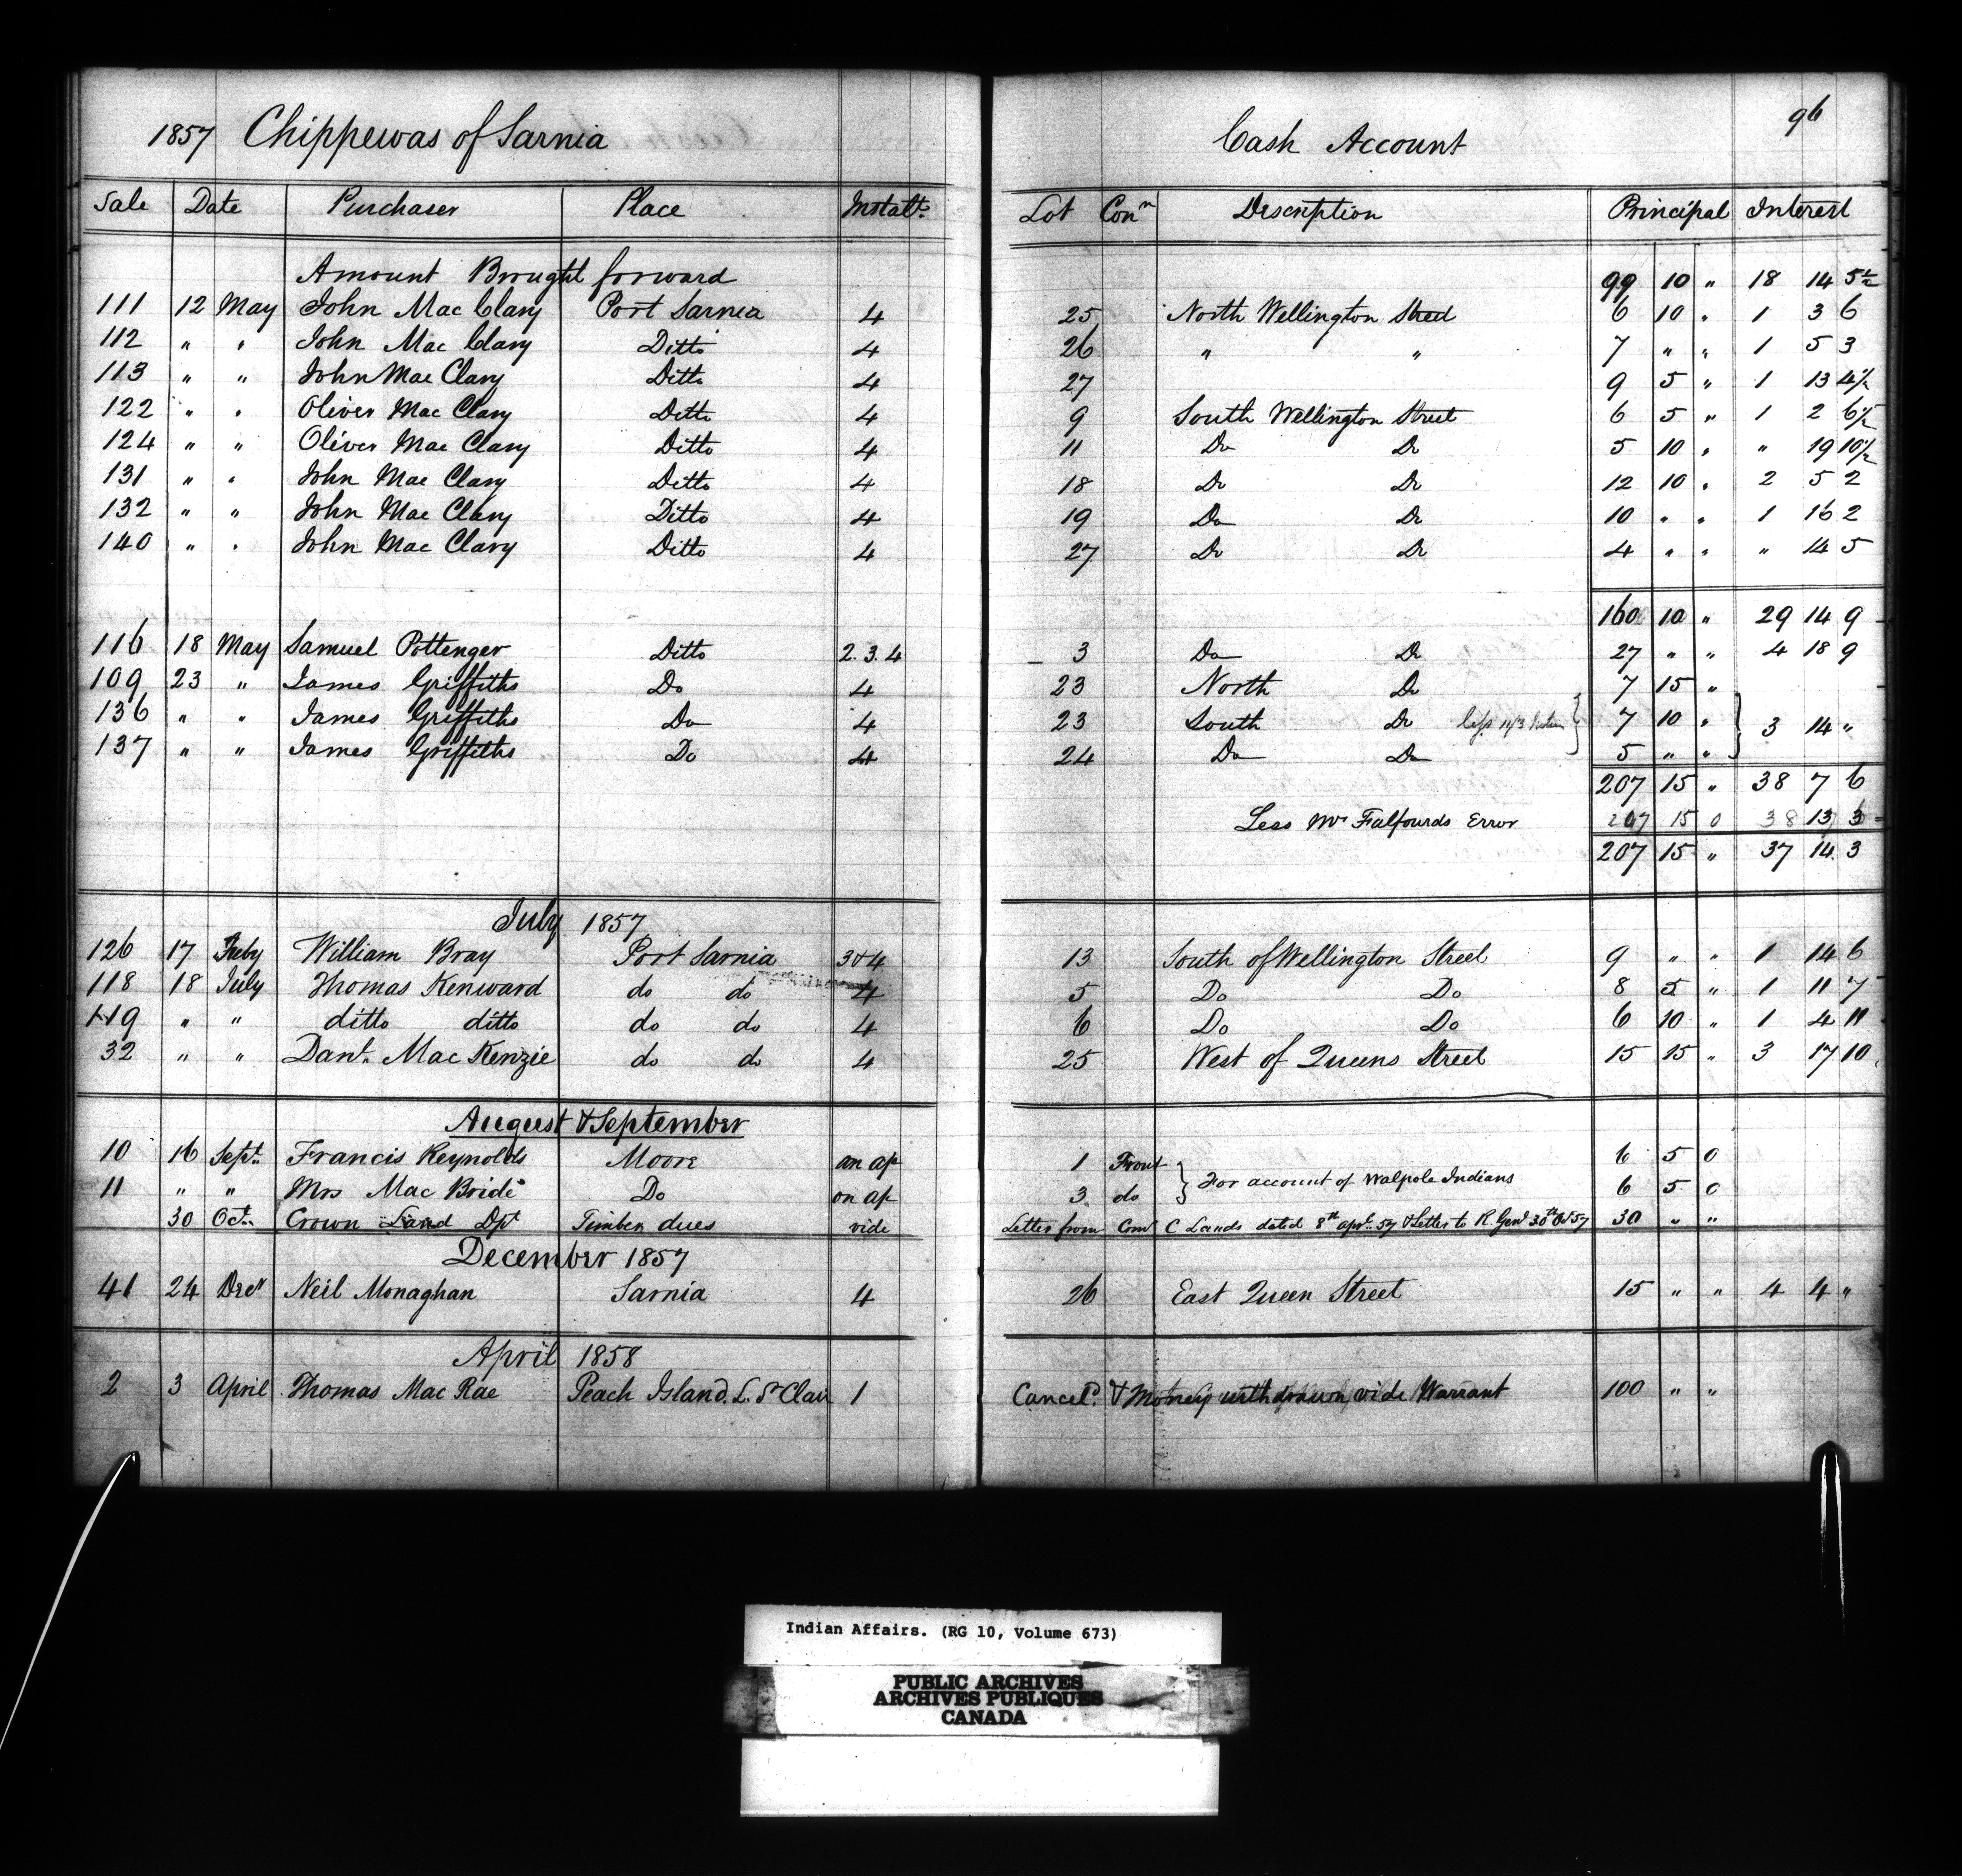 1857 Chippewas of Sarnia Cash Account 96
Sale Date Purchaser Place Instalt. Lot Conn Description Principal Interest
Amount Brought forward 99 10 " 18 14 5½
111 12 May John Mac Clary Port Sarnia 4 25 North Wellington Street 6 10 " 1 3 6
112 " " John Mac Clary Ditto 4 26 " " 7 " " 1 5 3
113 " " John Mac Clary Ditto 4 27 9 5 " 1 13 4½
122 " " Oliver Mac Clary Ditto 4 9 South Wellington Street 6 5 " 1 2 6½
124 " " Oliver Mac Clary Ditto 4 11 Do Do 5 10 " " 19 10½
131 " " John Mac Clary Ditto 4 18 Do Do 12 10 " 2 5 2
132 " " John Mac Clary Ditto 4 19 Do Do 10 " " 1 16 2
140 " " John Mac Clary Ditto 4 27 Do Do 4 " " " 14 5
160 10 " 29 14 9
116 18 May Samuel Pottenger Ditto 2.3.4 3 Do Do 27 " " 4 18 9
109 23 " James Griffiths Do 4 23 North Do 7 15 "
136 " " James Griffiths Do 4 23 South Do less 11/3 7 10 " 3 14 "
137 " " James Griffiths Do 4 24 Do Do 5 " "
207 15 " 38 7 6
Less Mr Falfourds Error 207 15 0 38 13 3
207 15 " 37 14 3
July 1857
126 17 July William Bray Port Sarnia 3&4 13 South of Wellington Street 9 " " 1 14 6
118 18 July Thomas Kenward do do 4 5 Do Do 8 5 " 1 11 7
119 " " ditto ditto do do 4 6 Do Do 6 10 " 1 4 11
32 " " Danl. Mac Kenzie do do 4 25 West of Queens Street 15 15 " 3 17 10
August & September
10 16 Sept. Francis Reynolds Moore on ap 1 Front For account of Walpole Indians 6 5 0
11 " " Mrs Mac Bride Do on ap 3 do 6 5 0
30 Oct. Crown Land Dpt Timber dues vide Letter from Comr C Lands dated 8th apl. 57 & Letter to R. Genl 30th Oct 57 30 " "
December 1857
41 24 Decr Neil Monaghan Sarnia 4 26 East Queen Street 15 " " 4 4 "
April 1858
2 3 April Thomas Mac Rae Peach Island. L. St Clair 1 Canceld. & Money withdrawn, vide Warrant 100 " "
Indian Affairs. (RG 10, Volume 673)
PUBLIC ARCHIVES
ARCHIVES PUBLIQUES
CANADA